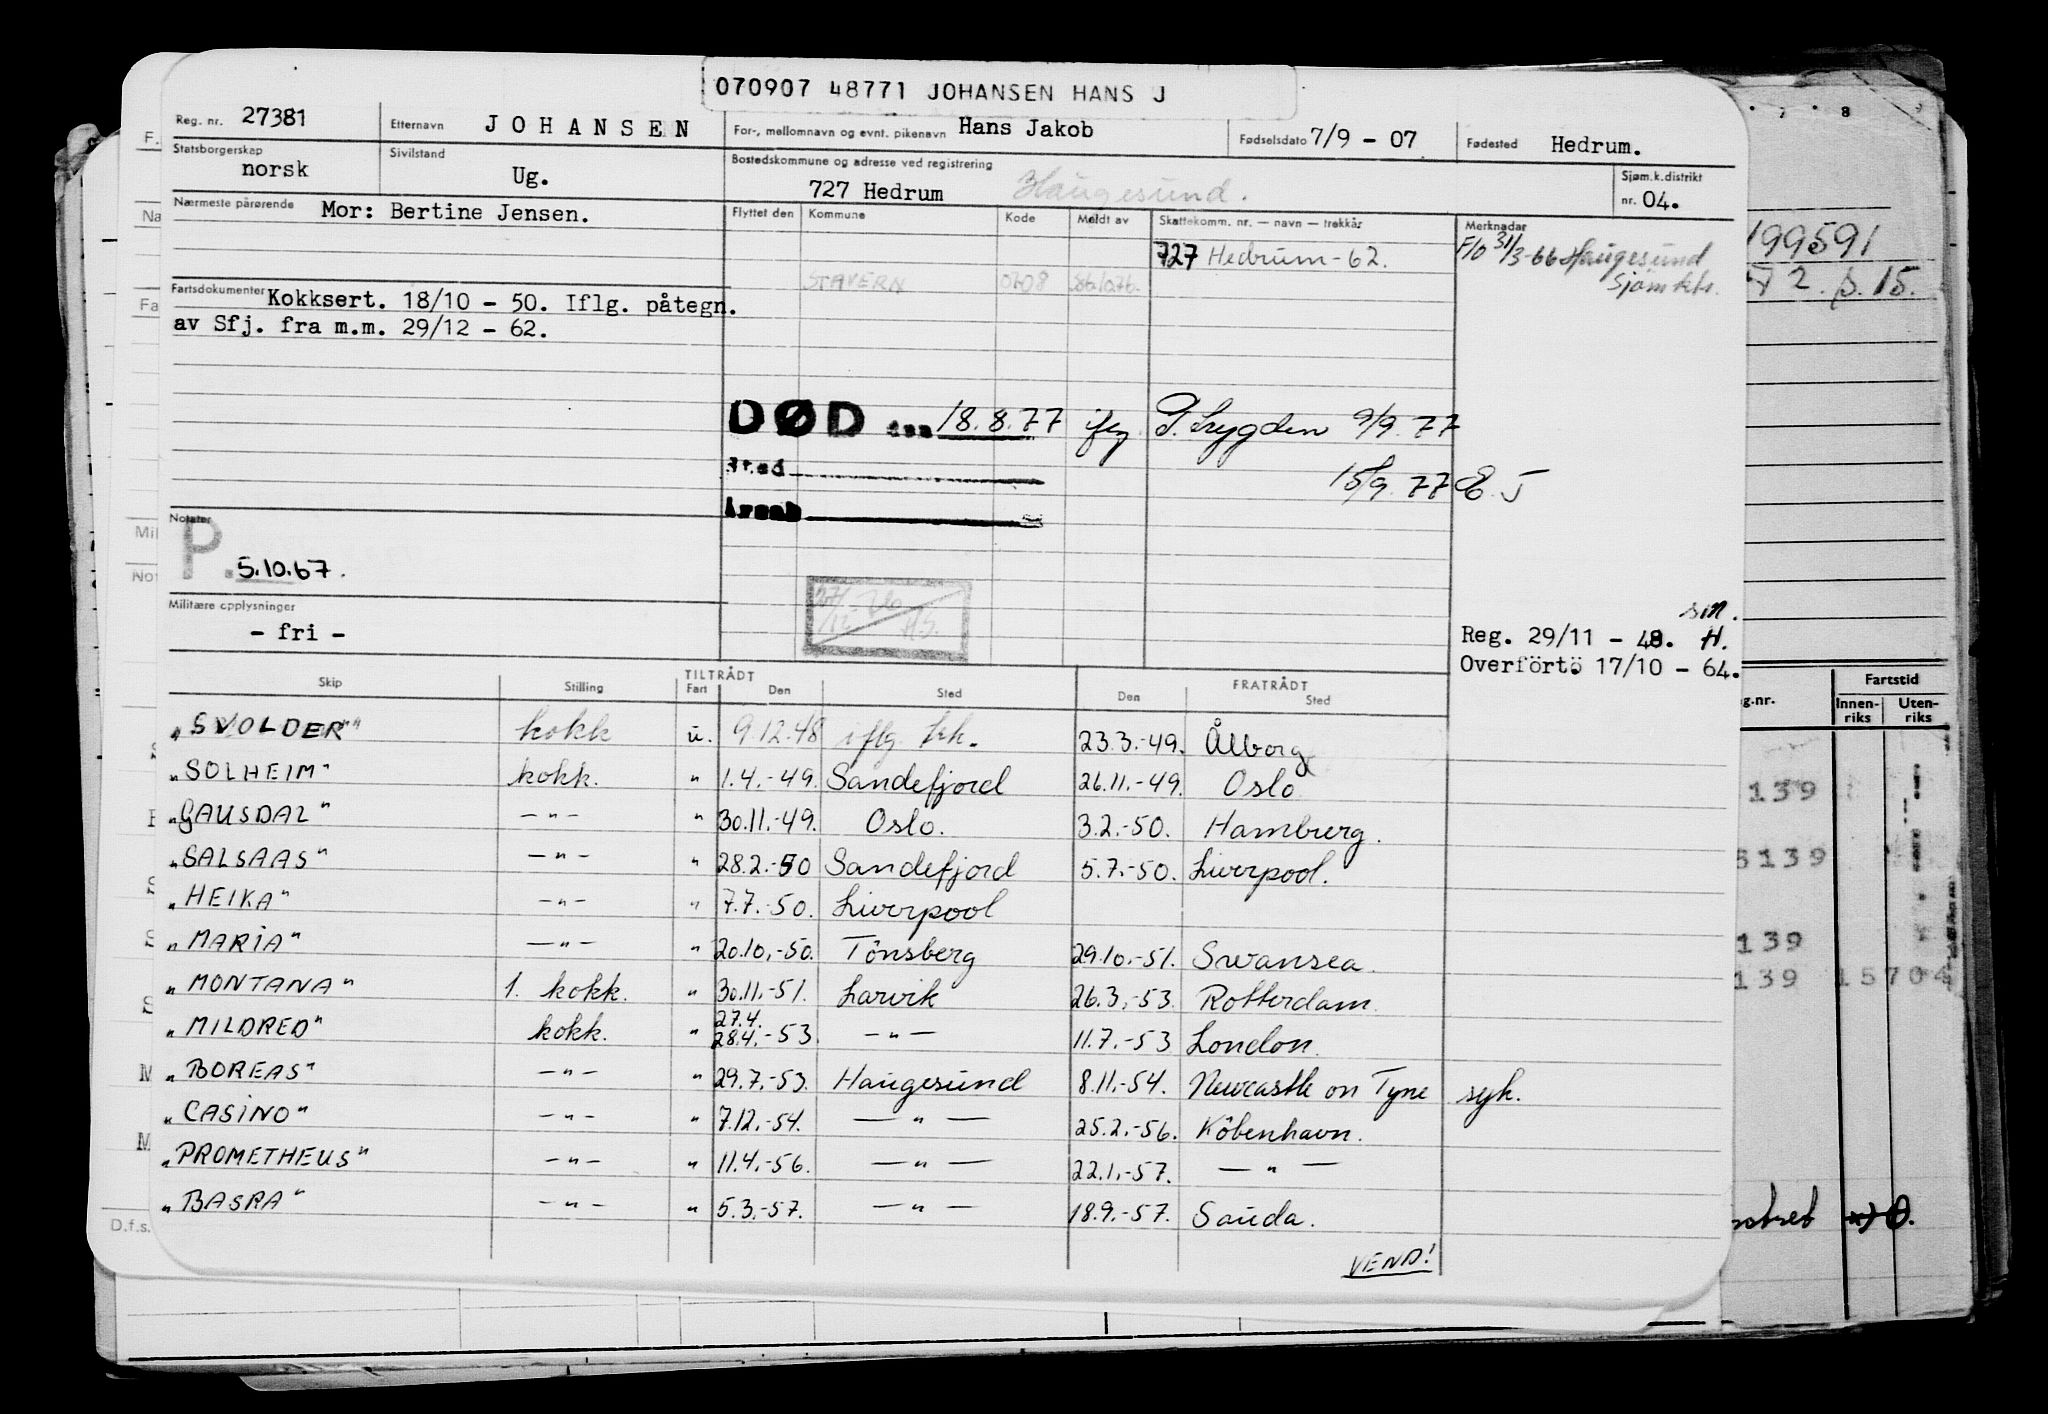 070907 48771 JOHANSEN HANS J
Reg. nr. 27381 Etternavn JOHANSEN For-, mellomnavn og evnt. pikenavn Hans Jakob Fødselsdato 7/9 - 07 Fødested Hedrum.
Statsborgerskap norsk Sivilstand Ug. Bostedskommune og adresse ved registrering 727 Hedrum Haugesund. Sjøm.k.distrikt nr. 04.
Nærmeste pårørende Mor: Bertine Jensen. Flyttet den Kommune Kode Meldt av Skattekomm. nr. — navn — trekkår Merknader
727 Hedrum - 62. F/O 31/3-66 Haugesund
STAVERN 0708 Sjømktr.
Fartsdokumenter Kokksert. 18/10 - 50. Iflg. påtegn.
av Sfj. fra m.m. 29/12 - 62.
DØD den 18.8.77 ifg. 9/9.77
Sted 15/9.77 E.J
Årsak
Notater
P. 5.10.67.
Militære opplysninger
- fri -
sm.
Reg. 29/11 - 48. H.
Overførtö 17/10 - 64.
Skip Stilling TILTRÅDT Fart Den Sted FRATRÅDT Den Sted
"SVOLDER" kokk u. 9.12.48 iflg. 23.3.-49. Ålborg
"SOLHEIM" kokk. " 1.4.-49. Sandefjord 26.11.-49. Oslo
"GAUSDAL" — " — " 30.11.-49. Oslo. 3.2.-50. Hamburg.
"SALSAAS" — " — " 28.2.-50 Sandefjord 5.7.-50. Liverpool.
"HEIKA" — " — " 7.7.-50. Liverpool
"MARIA" — " — " 20.10.-50. Tönsberg 29.10.-51. Swansea.
"MONTANA" 1. kokk. " 30.11.-51. Larvik 26.3.-53. Rotterdam.
27.4.
"MILDRED" kokk. " 28.4.-53. — " — 11.7.-53 London.
"BOREAS" — " — " 29.7.-53. Haugesund 8.11.-54. Newcastle on Tyne syk.
"CASINO" — " — " 7.12.-54. — " — 25.2.-56. Köbenhavn.
"PROMETHEUS" — " — " 11.4.-56. — " — 22.1.-57. — " —
"BASRA" — " — " 5.3.-57. — " — 18.9.-57. Sauda.
VEND!
7 8
199591
2. s. 15.
Fartstid
g.nr. Innen-riks Uten-riks
139
5139
139
139 15704
D.f.s.